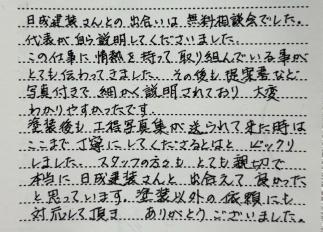 日成建装さんとの出会いは無料相談会でした。
代表が自ら説明してくださいました。
この仕事に情熱を持って取り組んでいる事が
とても伝わってきました。その後も提案書など
写真付きで細かく説明されており、大変
わかりやすかったです。
塗装後も工程写真集が送られて来た時は
ここまで丁寧にしてくださるとはとビックリ
しました。スタッフの方々もとても親切で
本当に日成建装さんと出会えて良かった
と思っています。塗装以外の依頼にも
対応して頂き ありがとうございました。